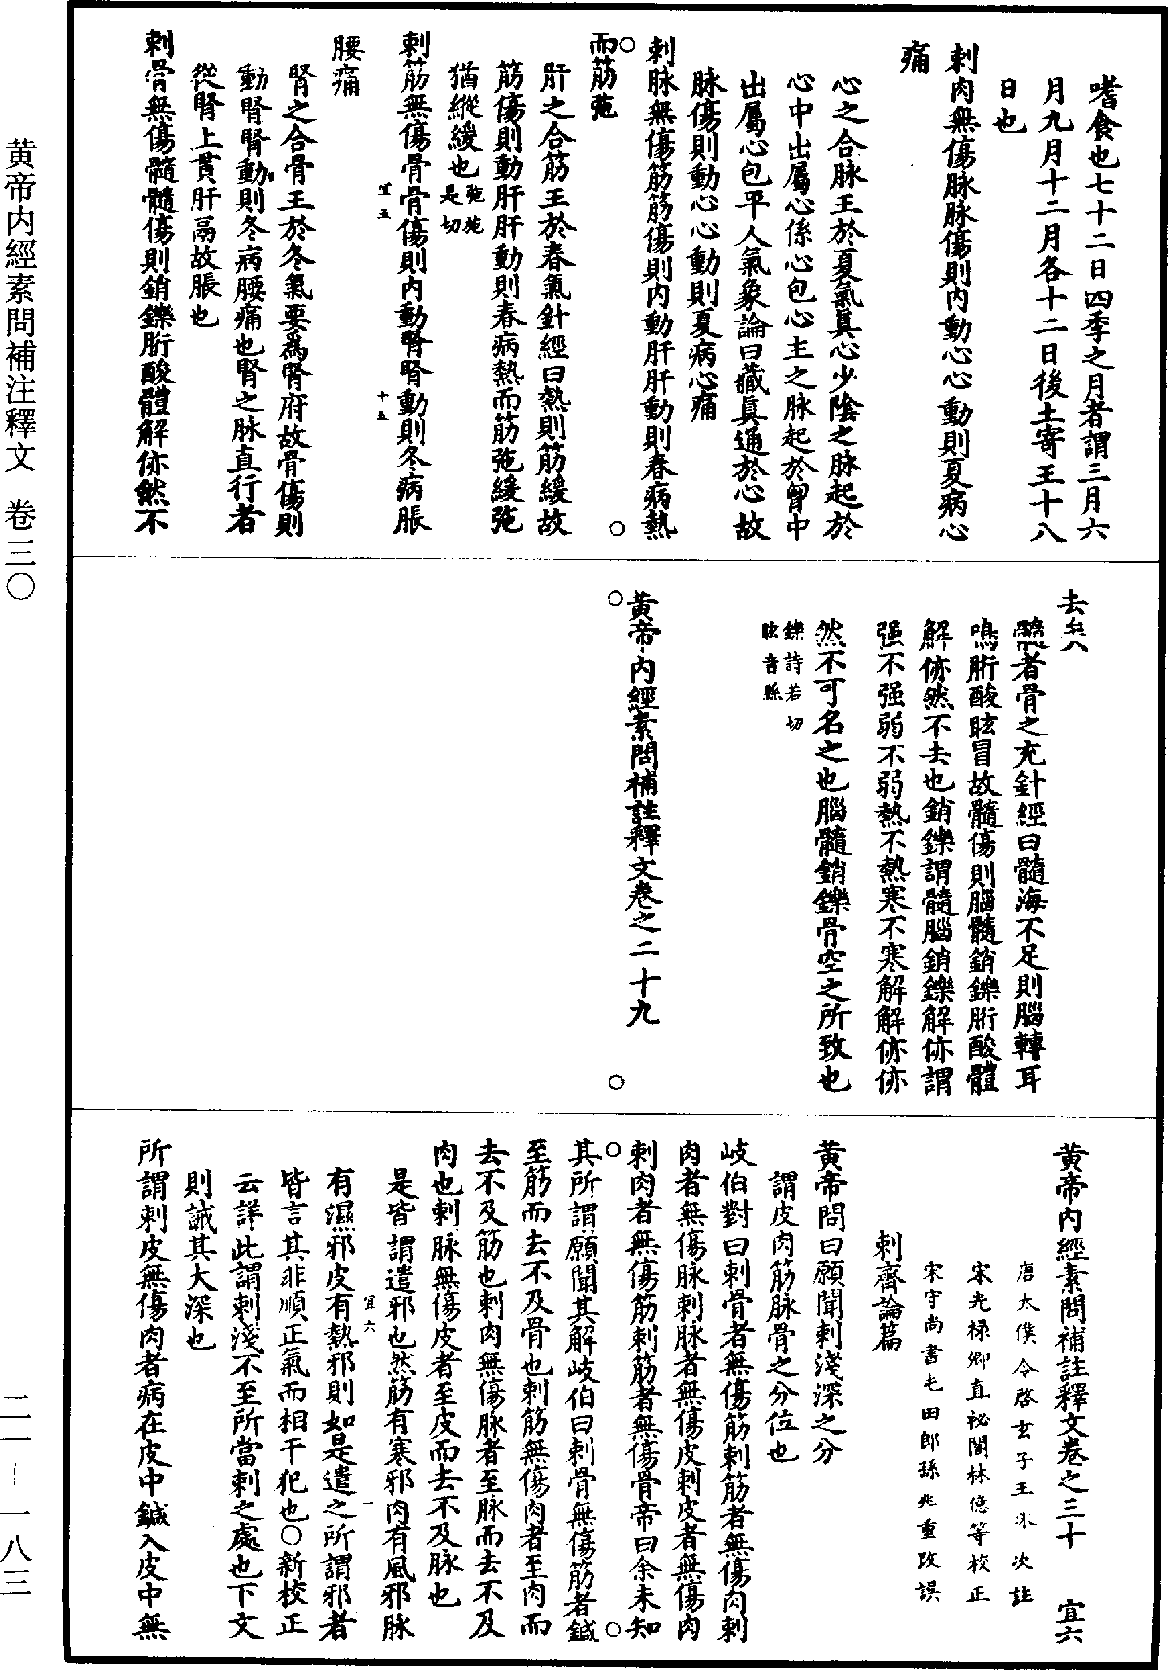 黃帝內經素問補注釋文　卷三〇
二一－一八三
嗜食也七十二日四季之月者謂三月六
月九月十二月各十二日後土寄王十八
日也
刺肉無傷脉脉傷則內動心心動則夏病心
痛
心之合脉王於夏氣真心少陰之脉起於
心中出屬心係心包心主之脉起於胷中
出屬心包平人氣象論曰藏真通於心故
脉傷則動心心動則夏病心痛
刺脉無傷筋筋傷則內動肝肝動則春病熱
而筋弛
肝之合筋王於春氣針經曰熱則筋緩故
筋傷則動肝肝動則春病熱而筋弛緩弛
猶縱緩也弛施
是切
刺筋無傷骨骨傷則內動腎腎動則冬病脹
宜五
十五
腰痛
腎之合骨王於冬氣要爲腎府故骨傷則
動腎腎動則冬病腰痛也腎之脉直行者
從腎上貫肝鬲故脹也
刺骨無傷髓髓傷則銷鑠胻酸體解㑊然不
去矣
髓者骨之充針經曰髓海不足則腦轉耳
鳴胻酸眩冒故髓傷則腦髓銷鑠胻酸體
解㑊然不去也銷鑠謂髓腦銷鑠解㑊謂
强不强弱不弱熱不熱寒不寒解解㑊㑊
然不可名之也腦髓銷鑠骨空之所致也
鑠詩若切
眩音縣
黃帝內經素問補註釋文卷之二十九
黃帝內經素問補註釋文卷之三十　宜六
唐太僕令啓玄子王氷次註
宋光祿卿直祕閣林億等校正
宋守尚書屯田郎孫兆重改誤
刺齊論篇
黃帝問曰願聞刺淺深之分
謂皮肉筋脉骨之分位也
岐伯對曰刺骨者無傷筋刺筋者無傷肉刺
肉者無傷脉刺脉者無傷皮刺皮者無傷肉
刺肉者無傷筋刺筋者無傷骨帝曰余未知
其所謂願聞其解岐伯曰刺骨無傷筋者鍼
至筋而去不及骨也刺筋無傷肉者至肉而
去不及筋也刺肉無傷脉者至脉而去不及
肉也刺脉無傷皮者至皮而去不及脉也
是皆謂遣邪也然筋有寒邪肉有風邪脉
宜六
一
有濕邪皮有熱邪則如是遣之所謂邪者
皆言其非順正氣而相干犯也○新校正
云詳此謂刺淺不至所當刺之處也下文
則誡其大深也
所謂刺皮無傷肉者病在皮中鍼入皮中無